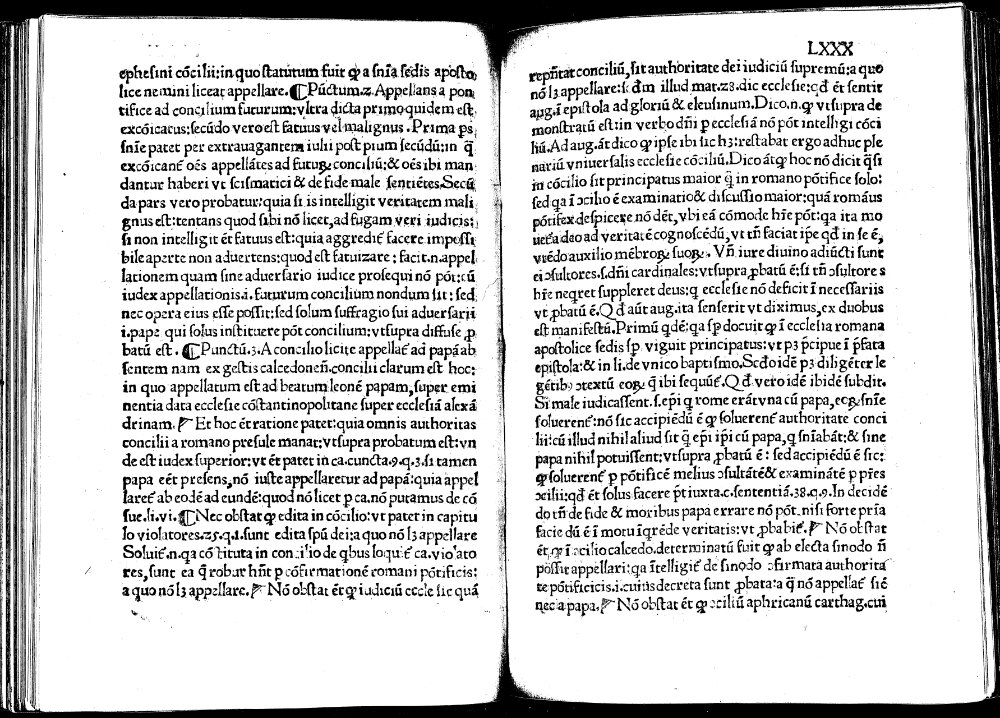 ephesini cōcilii: in quo statutum fuit ꝙ a sn̄ia sedis aposto
lice nemini liceat appellare. ¶ Pūctum.2. Appellans a pon
tifice ad concilium futurum: vltra dicta primo quidem est
excōicatus: secūdo vero est fatuus vel malignus. Prima ps
sn̄ie patet per extrauagantem iulii post pium secūdū: in q̄
excōicant̄ oēs appellātes ad futuꝝ conciliū: & oēs ibi man
dantur haberi vt scismatici & de fide male sentiētes. Secū
da pars vero probatur: quia si is intelligit veritatem mali
gnus est: tentans quod sibi nō licet, ad fugam veri iudicis:
si non intelligit ēt fatuus est: quia aggredit̄ facere impossi
bile aperte non aduertens: quod est fatuizare: facit.n. appel
lationem quam sine aduersario iudice prosequi nō pōt: cū
iudex appellationis.i. futurum concilium nondum sit: sed
nec opera eius esse possit: sed solum suffragio sui aduersarii
.i. pape qui solus instituere pōt concilium: vt supra diffuse ꝓ
batū est. ¶ Punctū.3. A concilio licite appellat̄ ad papā ab
sentem nam ex gestis calcedonen̄. concilii clarum est hoc:
in quo appellatum est ad beatum leonē papam, super emi
nentia data ecclesie cōstantinopolitane super ecclesiā alexā
drinam. Et hoc ēt ratione patet: quia omnis authoritas
concilii a romano presule manat: vt supra probatum est: vn
de est iudex superior: vt ēt patet in ca. cuncta.9.q.3. si tamen
papa eēt presens, nō iuste appellaretur ad papā: quia appel
laret̄ ab eodē ad eundē: quod nō licet ꝑ ca. nō putamus de cō
sue.li.vi. ¶ Nec obstat ꝙ edita in cōcilio: vt patet in capitu
lo violatores.25.q.1. sunt edita spū dei: a quo nō lꝫ appellare
Soluit̄.n. qa cōstituta in concilio de qbus loquit̄ ca. violato
res, sunt ea q̄ robur hn̄t ꝑ cōfirmationē romani pōtificis:
a quo nō lꝫ appellare. Nō obstat ēt ꝙ iudiciū eccle sie quā
LXXX
rep̄n̄tat conciliū, sit authoritate dei iudiciū supremū: a quo
nō lꝫ appellare: s̄ dm̄ illud mat.23. dic ecclesie: qd̄ ēt sentit
aug. ī epistola ad gloriū & eleusinum. Dico.n. ꝙ vt supra de
monstratū est: in verbo dn̄i ꝑ ecclesiā nō pōt intelligi cōci
liū. Ad aug. āt dico ꝙ ipse ibi sic hꝫ: restabat ergo adhuc ple
nariū vniuersalis ecclesie cōciliū. Dico āt ꝙ hoc nō dicit q̄si
in cōcilio sit principatus maior q̄ in romano pōtifice solo:
sed qa ī ↄcilio ē examinatio & discussio maior: quā romāus
pōtifex despicere nō dēt, vbi eā cōmode hr̄e pōt: qa ita mo
uet̄ a deo ad veritatē cognoscēdū, vt tn̄ faciat ip̄e qd̄ in se ē,
vtēdo auxilio mēbroꝝ suoꝝ. Vn̄ iure diuino adiūcti sunt
ei ↄsultores.s. dn̄i cardinales: vt supra ꝓbatū ē: si tn̄ ↄsultores
hr̄e neqret suppleret deus: q ecclesie nō deficit ī necessariis
vt ꝓbatū ē. Qd̄ aūt aug. ita senserit vt diximus, ex duobus
est manifestū. Primū qdē: qa sp̄ docuit ꝙ ī ecclesia romana
apostolice sedis sp̄ viguit principatus: vt pꝫ p̄cipue ī p̄fata
epistola: & in li. de vnico baptismo. Scd̄o idē pꝫ diligēter le
gētibꝯ ↄtextū eoꝝ q̄ ibi sequūt̄. Qd̄ vero idē ibidē subdit.
Si male iudicassent.s. ep̄i q rome erāt vna cū papa, eoꝝ sn̄ie
soluerent̄: nō sic accipiēdū ē ꝙ soluerent̄ authoritate conci
lii: cū illud nihil aliud sit q̄ ep̄i ip̄i cū papa, q sn̄iabāt: & sine
papa nihil potuissent: vt supra ꝓbatū ē: sed accipiēdū ē sic:
ꝙ soluerent̄ ꝑ pōtificē melius ↄsultātē & examinātē ꝑ p̄res
ↄcilii: qd̄ ēt solus facere p̄t iuxta.c. sententiā.38.q.9. In decidē
do tn̄ de fide & moribus papa errare nō pōt, nisi forte pria
facie dū ē ī motu īqrēde veritatis: vt ꝓbabit̄. Nō obstat
ēt, ꝙ ī ↄcilio calcedo. determinatū fuit ꝙ ab electa sinodo n̄
possit appellari: qa ītelligit̄ de sinodo ↄfirmata authorita
te pōtificicis.i. cuius decreta sunt ꝓbata: a q̄ nō appellat̄ siē
nec a papa. Nō obstat ēt ꝙ ↄciliū aphricanū carthag. cui